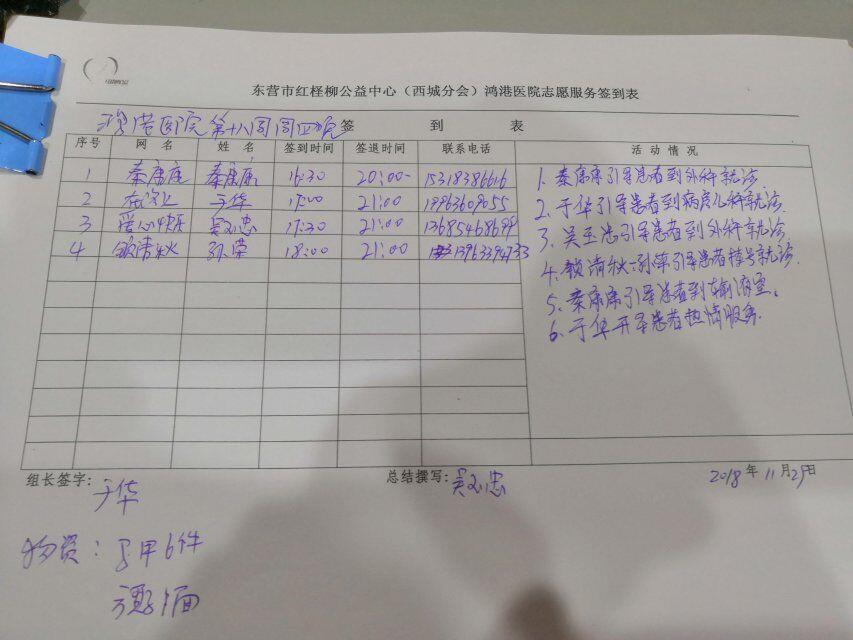 东营市红柽柳公益中心（西城分会）鸿港医院志愿服务签到表
鸿港医院第十八周周四晚 签 到 表
序号 网 名 姓 名 签到时间 签退时间 联系电话 活 动 情 况
1 秦席席 秦席席 16:30 20:00 15318386616
2 于华 17:00 21:00
3 吴玉忠 17:30 21:00
4 锁清秋 孙荣 18:00 21:00 13963394733
1. 秦席席引导患者到外科就诊
2. 于华引导患者到病房儿科就诊.
3. 吴玉忠引导患者到外科就诊.
4. 锁清秋引导患者挂号就诊.
5. 秦席席引导患者到输液室。
6. 于华开导患者热情服务.
组长签字: 于华 总结撰写: 吴玉忠 2018 年 11 月 29 日
物资: 马甲6件
1面